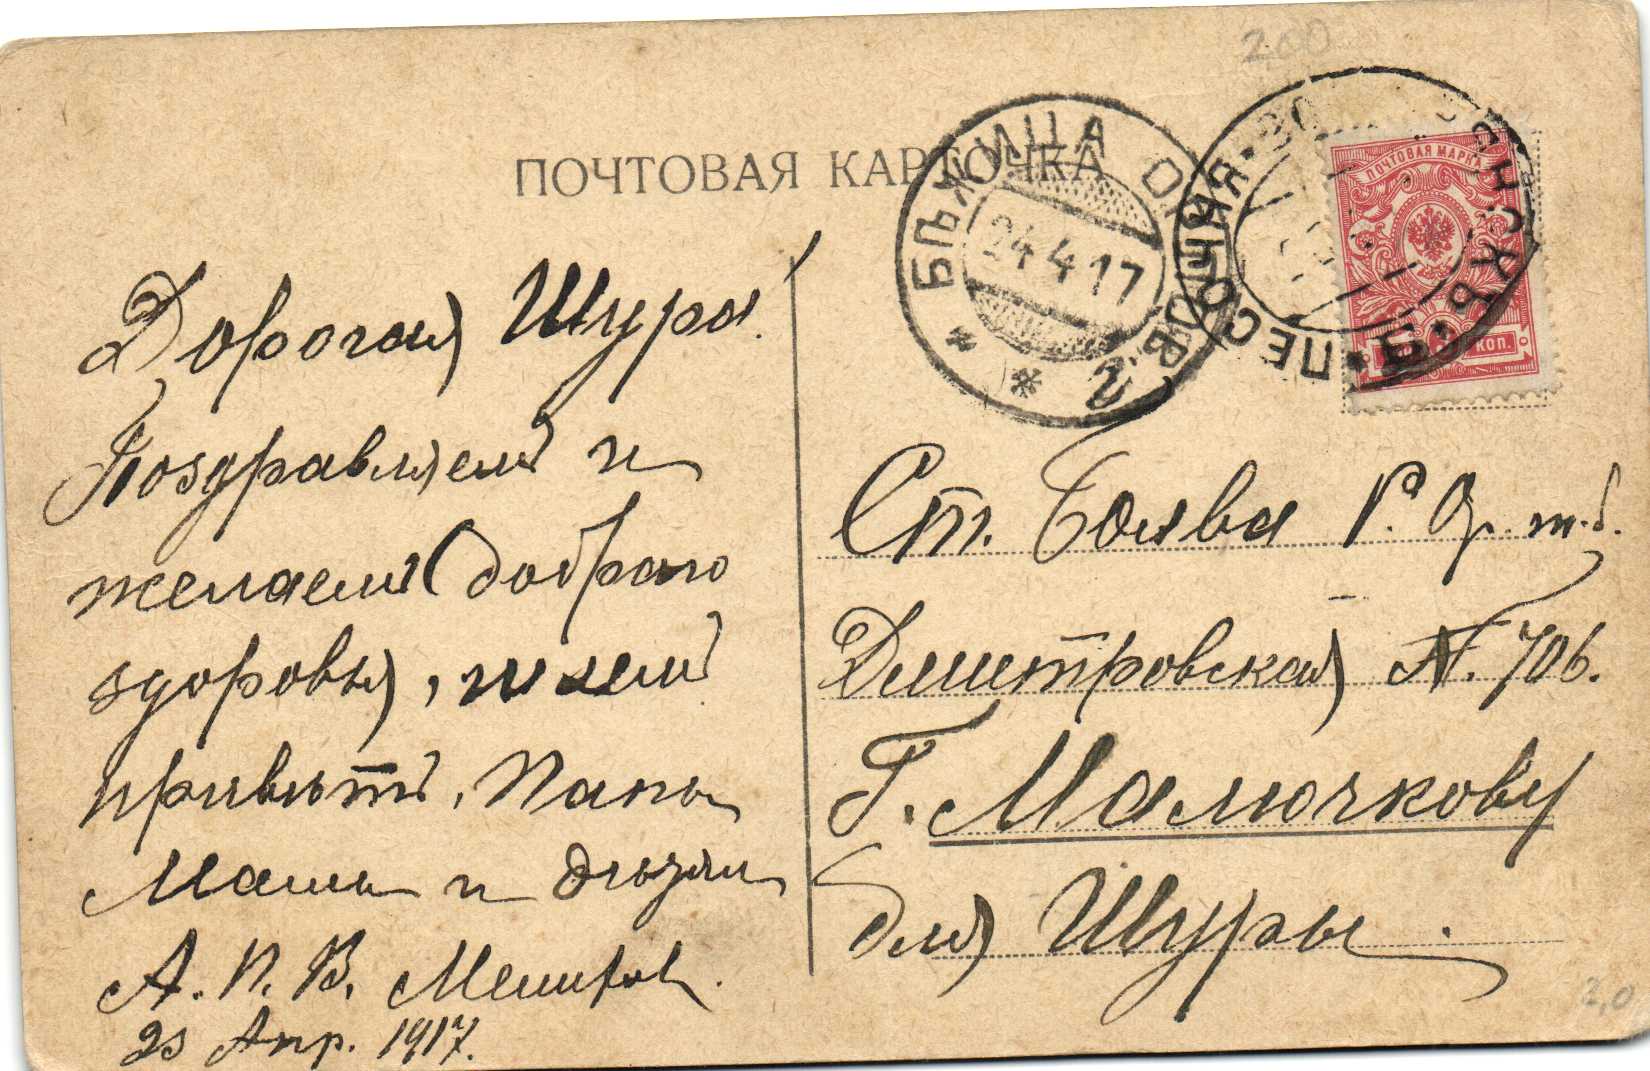 200
ПОЧТОВАЯ КАРТОЧКА
БѢЖИЦА ОРЛОВ.
24 4 17
ПЕСОЧНЯ
ПОЧТОВАЯ МАРКА
КОП.
Дорогая Шура!
Поздравляемъ и
желаемъ добраго
здоровья, шлемъ
привѣтъ. Папы
Мамы и дѣдли
А. П. В.
23 Апр. 1917.
Ст. Болва Р. О. ж. д.
Дмитровская № 706.
Г. Малючкову
для Шуры.
2,0